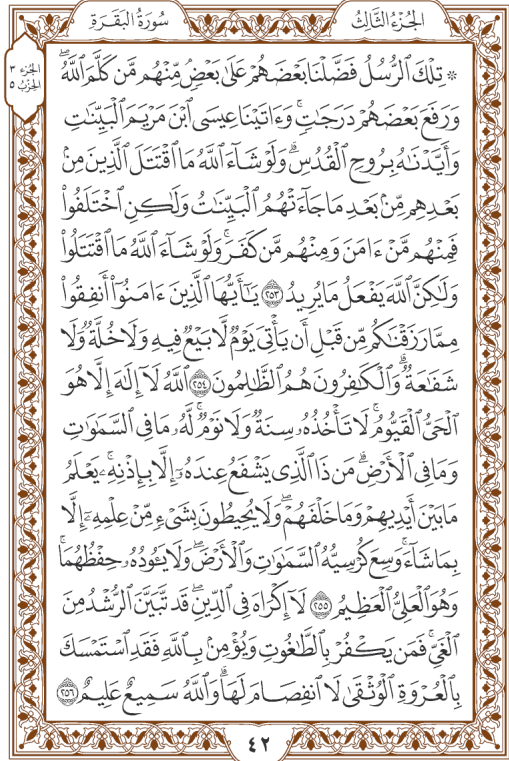 الجُزْءُ الثَّالِثُ
سُورَةُ البَقَرَةِ
الجزء ٣
الحزب ٥
۞ تِلْكَ ٱلرُّسُلُ فَضَّلْنَا بَعْضَهُمْ عَلَىٰ بَعْضٖۘ مِّنْهُم مَّن كَلَّمَ ٱللَّهُۖ
وَرَفَعَ بَعْضَهُمْ دَرَجَٰتٖۚ وَءَاتَيْنَا عِيسَى ٱبْنَ مَرْيَمَ ٱلْبَيِّنَٰتِ
وَأَيَّدْنَٰهُ بِرُوحِ ٱلْقُدُسِۗ وَلَوْ شَآءَ ٱللَّهُ مَا ٱقْتَتَلَ ٱلَّذِينَ مِنۢ
بَعْدِهِم مِّنۢ بَعْدِ مَا جَآءَتْهُمُ ٱلْبَيِّنَٰتُ وَلَٰكِنِ ٱخْتَلَفُوا۟
فَمِنْهُم مَّنْ ءَامَنَ وَمِنْهُم مَّن كَفَرَۚ وَلَوْ شَآءَ ٱللَّهُ مَا ٱقْتَتَلُوا۟
وَلَٰكِنَّ ٱللَّهَ يَفْعَلُ مَا يُرِيدُ ٢٥٣ يَٰٓأَيُّهَا ٱلَّذِينَ ءَامَنُوٓا۟ أَنفِقُوا۟
مِمَّا رَزَقْنَٰكُم مِّن قَبْلِ أَن يَأْتِيَ يَوْمٞ لَّا بَيْعٞ فِيهِ وَلَا خُلَّةٞ وَلَا
شَفَٰعَةٞۗ وَٱلْكَٰفِرُونَ هُمُ ٱلظَّٰلِمُونَ ٢٥٤ ٱللَّهُ لَآ إِلَٰهَ إِلَّا هُوَ
ٱلْحَيُّ ٱلْقَيُّومُۚ لَا تَأْخُذُهُۥ سِنَةٞ وَلَا نَوْمٞۚ لَّهُۥ مَا فِي ٱلسَّمَٰوَٰتِ
وَمَا فِي ٱلْأَرْضِۗ مَن ذَا ٱلَّذِي يَشْفَعُ عِندَهُۥٓ إِلَّا بِإِذْنِهِۦۚ يَعْلَمُ
مَا بَيْنَ أَيْدِيهِمْ وَمَا خَلْفَهُمْۖ وَلَا يُحِيطُونَ بِشَيْءٖ مِّنْ عِلْمِهِۦٓ إِلَّا
بِمَا شَآءَۚ وَسِعَ كُرْسِيُّهُ ٱلسَّمَٰوَٰتِ وَٱلْأَرْضَۖ وَلَا يَـُٔودُهُۥ حِفْظُهُمَاۚ
وَهُوَ ٱلْعَلِيُّ ٱلْعَظِيمُ ٢٥٥ لَآ إِكْرَاهَ فِي ٱلدِّينِۖ قَد تَّبَيَّنَ ٱلرُّشْدُ مِنَ
ٱلْغَيِّۚ فَمَن يَكْفُرْ بِٱلطَّٰغُوتِ وَيُؤْمِنۢ بِٱللَّهِ فَقَدِ ٱسْتَمْسَكَ
بِٱلْعُرْوَةِ ٱلْوُثْقَىٰ لَا ٱنفِصَامَ لَهَاۗ وَٱللَّهُ سَمِيعٌ عَلِيمٌ ٢٥٦
٤٢